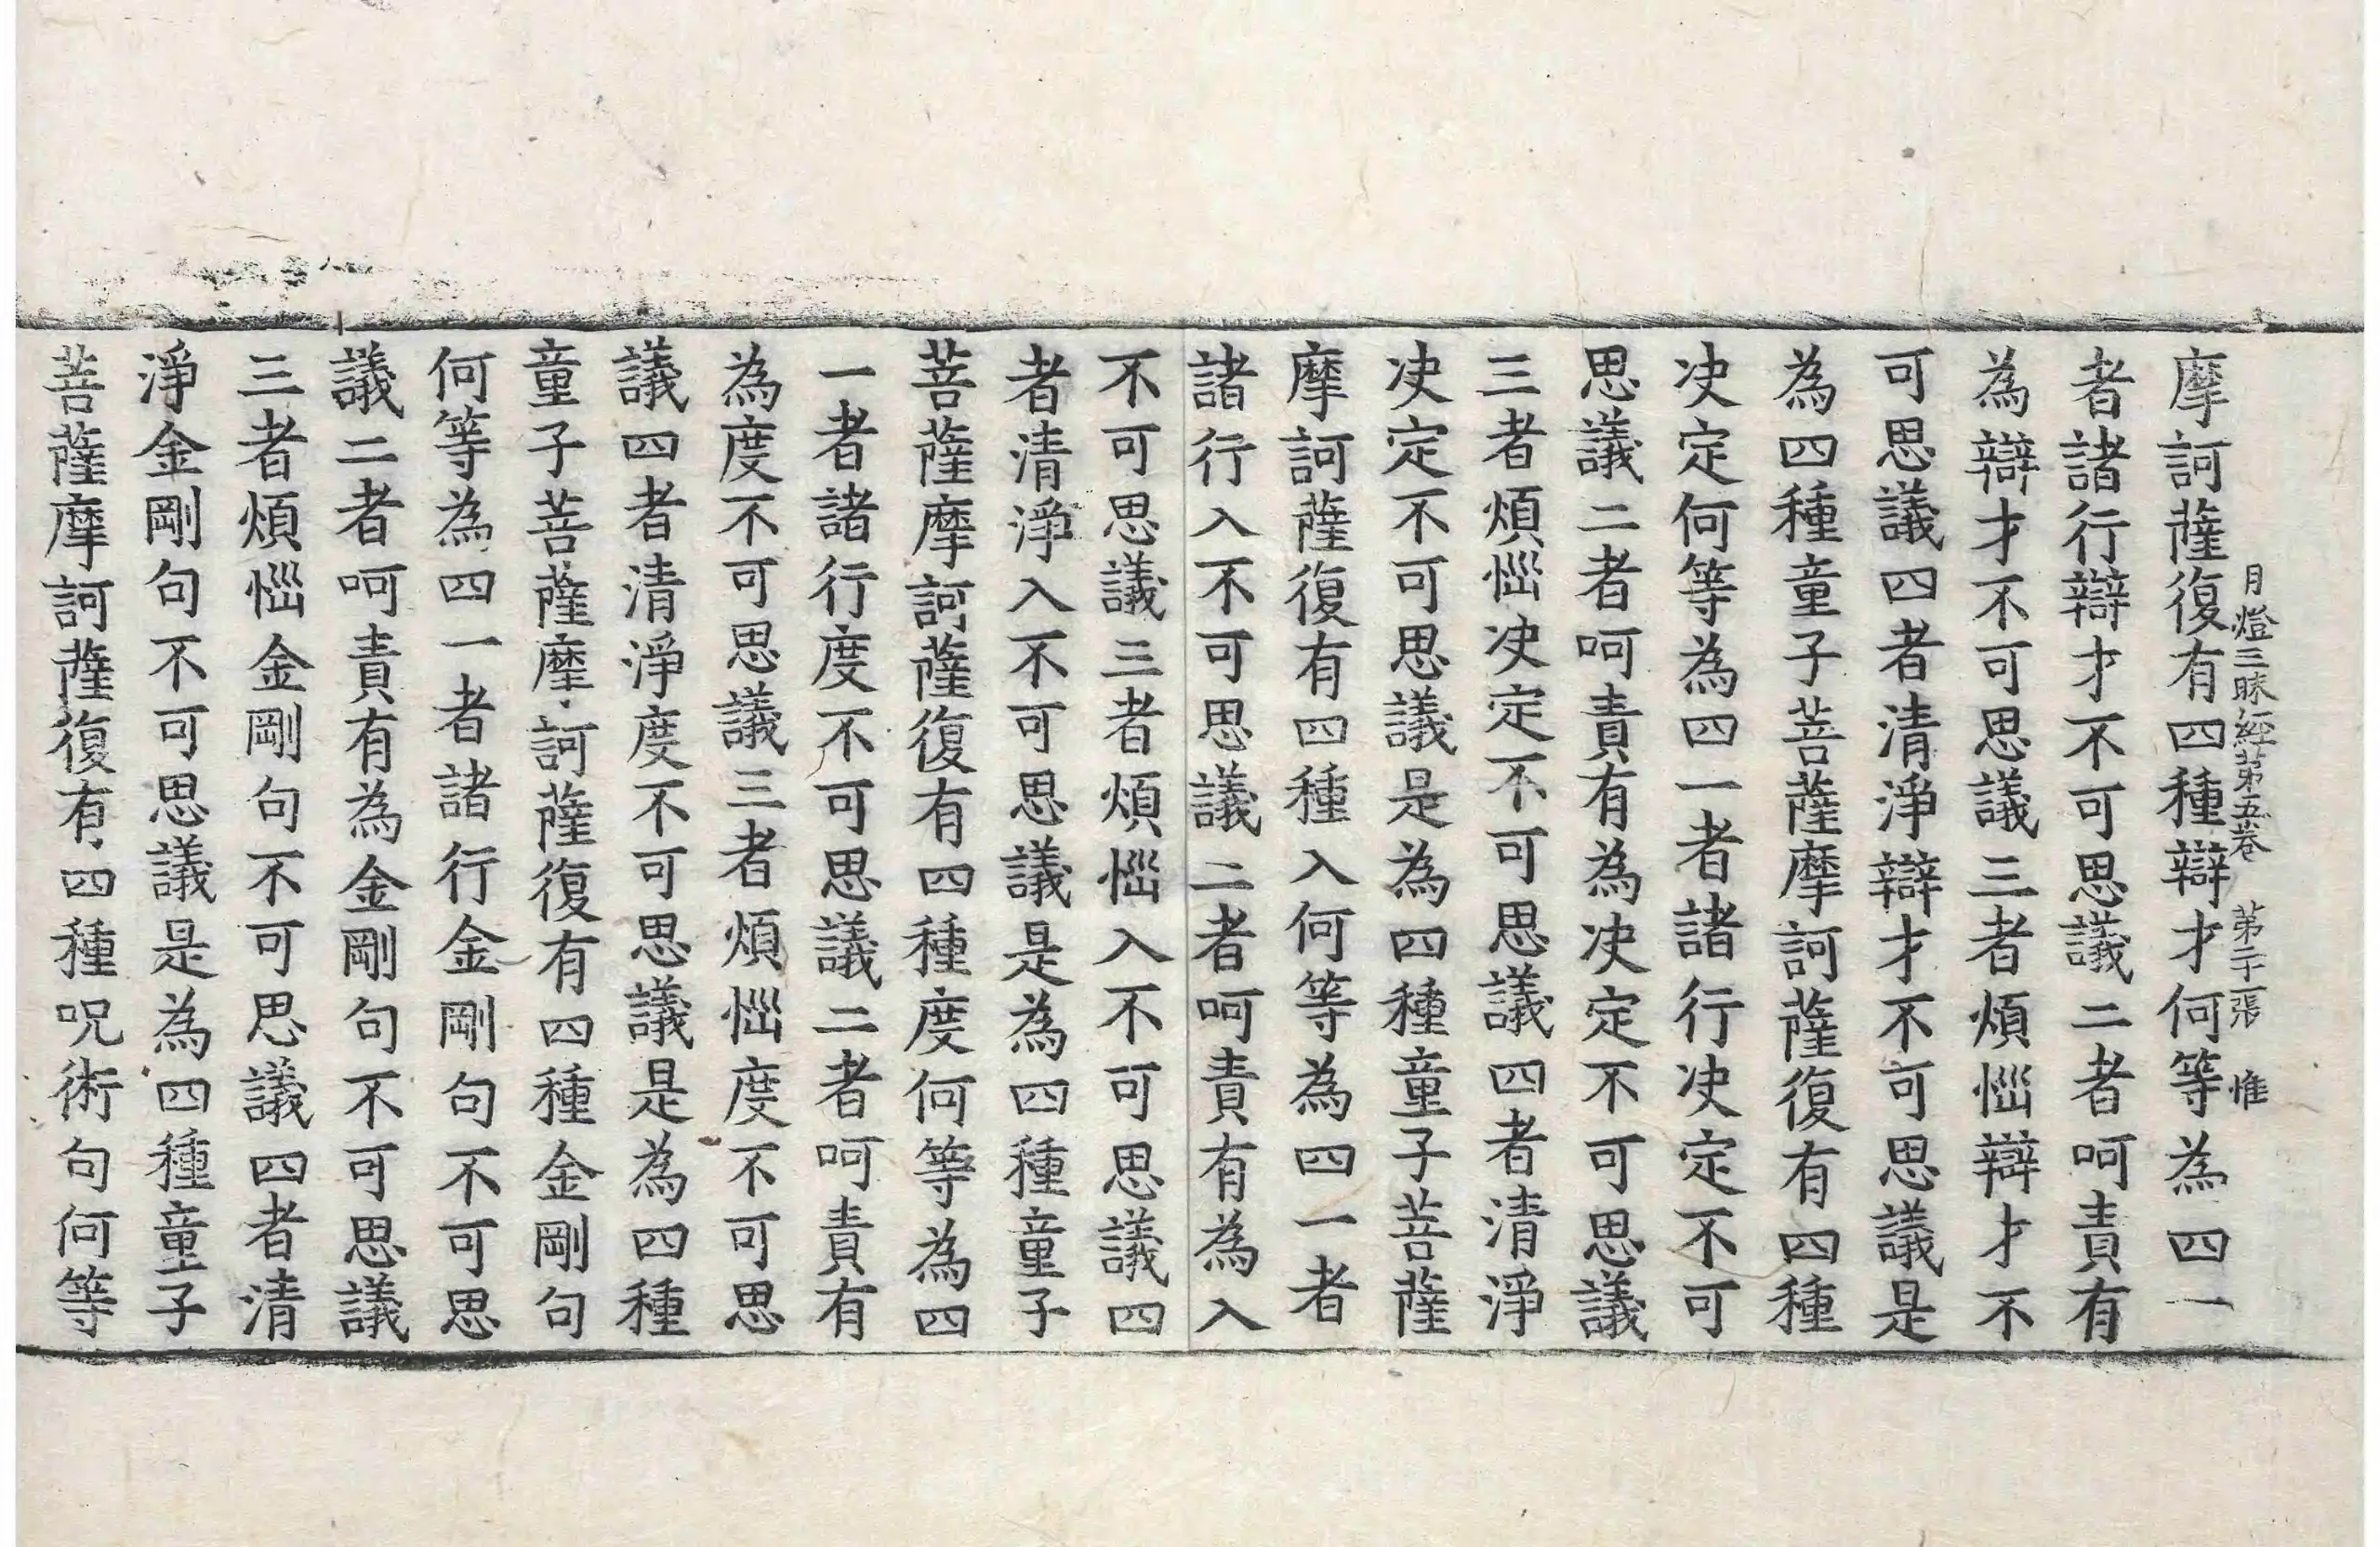 月燈三昧經第五卷　第二十一張　惟
摩訶薩復有四種辯才何等為四一
者諸行辯才不可思議二者呵責有
為辯才不可思議三者煩惱辯才不
可思議四者清淨辯才不可思議是
為四種童子菩薩摩訶薩復有四種
决定何等為四一者諸行决定不可
思議二者呵責有為决定不可思議
三者煩惱决定不可思議四者清淨
决定不可思議是為四種童子菩薩
摩訶薩復有四種入何等為四一者
諸行入不可思議二者呵責有為入
不可思議三者煩惱入不可思議四
者清淨入不可思議是為四種童子
菩薩摩訶薩復有四種度何等為四
一者諸行度不可思議二者呵責有
為度不可思議三者煩惱度不可思
議四者清淨度不可思議是為四種
童子菩薩摩訶薩復有四種金剛句
何等為四一者諸行金剛句不可思
議二者呵責有為金剛句不可思議
三者煩惱金剛句不可思議四者清
淨金剛句不可思議是為四種童子
菩薩摩訶薩復有四種呪術句何等